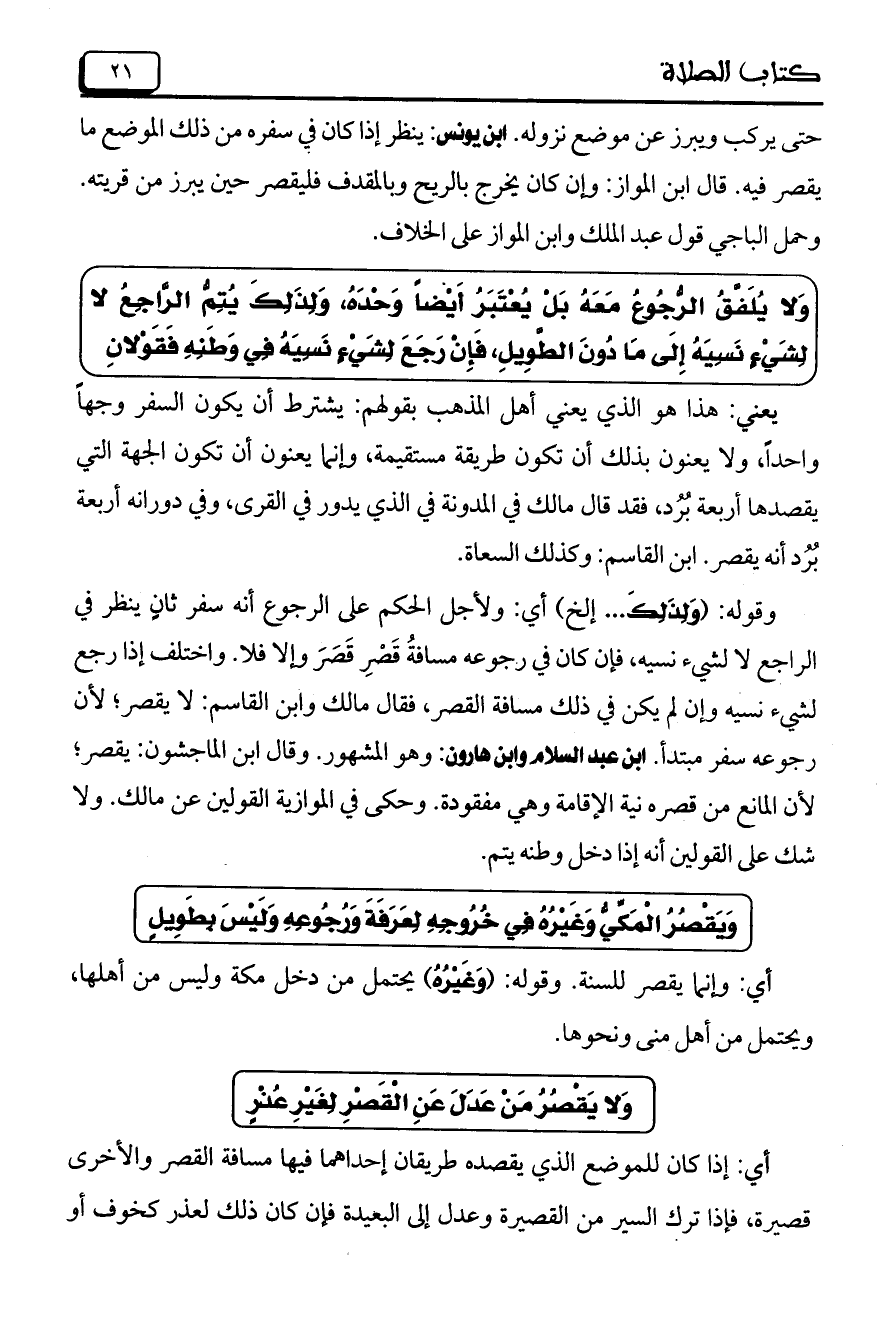 كتاب الصلاة
٢١
حتى يركب ويبرز عن موضع نزوله. ابن يونس: ينظر إذا كان في سفره من ذلك الموضع ما
يقصر فيه. قال ابن المواز: وإن كان يخرج بالريح وبالمقدف فليقصر حين يبرز من قريته.
وحمل الباجي قول عبد الملك وابن المواز على الخلاف.
وَلا يُلَفَّقُ الرُّجُوعُ مَعَهُ بَلْ يُعْتَبَرُ أَيْضاً وَحْدَهُ، وَلِذَلِكَ يُتِمُّ الرَّاجِعُ لا
لِشَيْءٍ نَسِيَهُ إِلَى مَا دُونَ الطَّوِيلِ، فَإِنْ رَجَعَ لِشَيْءٍ نَسِيَهُ فِي وَطَنِهِ فَقَوْلانِ
يعني: هذا هو الذي يعني أهل المذهب بقولهم: يشترط أن يكون السفر وجهاً
واحداً، ولا يعنون بذلك أن تكون طريقة مستقيمة، وإنما يعنون أن تكون الجهة التي
يقصدها أربعة بُرُد، فقد قال مالك في المدونة في الذي يدور في القرى، وفي دورانه أربعة
بُرُد أنه يقصر. ابن القاسم: وكذلك السعاة.
وقوله: (وَلِذَلِكَ... إلخ) أي: ولأجل الحكم على الرجوع أنه سفر ثانٍ ينظر في
الراجع لا لشيء نسيه، فإن كان في رجوعه مسافةُ قَصْرٍ قَصَرَ وإلا فلا. واختلف إذا رجع
لشيء نسيه وإن لم يكن في ذلك مسافة القصر، فقال مالك وابن القاسم: لا يقصر؛ لأن
رجوعه سفر مبتدأ. ابن عبد السلام وابن هارون: وهو المشهور. وقال ابن الماجشون: يقصر؛
لأن المانع من قصره نية الإقامة وهي مفقودة. وحكى في الموازية القولين عن مالك. ولا
شك على القولين أنه إذا دخل وطنه يتم.
وَيَقْصُرُ الْمَكِّيُّ وَغَيْرُهُ فِي خُرُوجِهِ لِعَرَفَةَ وَرُجُوعِهِ وَلَيْسَ بِطَوِيلٍ
أي: وإنما يقصر للسنة. وقوله: (وَغَيْرُهُ) يحتمل من دخل مكة وليس من أهلها،
ويحتمل من أهل منى ونحوها.
وَلا يَقْصُرُ مَنْ عَدَلَ عَنِ الْقَصْرِ لِغَيْرِ عُذْرٍ
أي: إذا كان للموضع الذي يقصده طريقان إحداهما فيها مسافة القصر والأخرى
قصيرة، فإذا ترك السير من القصيرة وعدل إلى البعيدة فإن كان ذلك لعذر كخوف أو